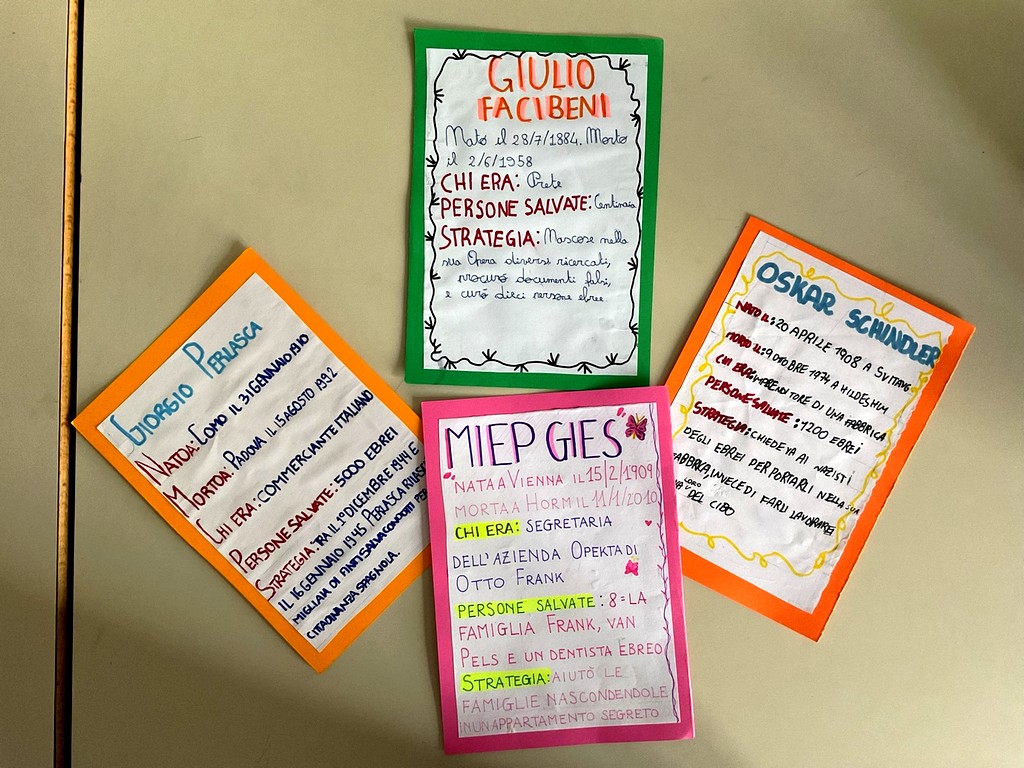 GIULIO
FACIBENI
Nato il 28/7/1884. Morto
il 2/6/1958
CHI ERA: Prete
PERSONE SALVATE: Centinaia
STRATEGIA: Nascose nella
sua Opera diversi ricercati,
procurò documenti falsi,
e curò dieci persone ebree.
GIORGIO PERLASCA
NATO A: COMO IL 31 GENNAIO 1910
MORTO A: PADOVA IL 15 AGOSTO 1992
CHI ERA: COMMERCIANTE ITALIANO
PERSONE SALVATE: 5000 EBREI
STRATEGIA: TRA IL 1° DICEMBRE 1944 E
IL 16 GENNAIO 1945 PERLASCA
MIGLIAIA DI FINTI SALVACONDOTTI PER
CITTADINANZA SPAGNOLA.
MIEP GIES
NATA A VIENNA IL 15/2/1909
MORTA A HORM IL 11/1/2010
CHI ERA: SEGRETARIA
DELL'AZIENDA OPEKTA DI
OTTO FRANK
PERSONE SALVATE: 8=LA
FAMIGLIA FRANK, VAN
PELS E UN DENTISTA EBREO
STRATEGIA: AIUTÒ LE
FAMIGLIE NASCONDENDOLE
IN UN APPARTAMENTO SEGRETO
OSKAR SCHINDLER
NATO IL: 20 APRILE 1908 A SVITAVS
MORTO IL: 9 OTTOBRE 1974 A HILDESHIM
CHI ERA: IMPRENDITORE DI UNA FABBRICA
PERSONE SALVATE: 1200 EBREI
STRATEGIA: CHIEDEVA AI NAZISTI
DEGLI EBREI PER PORTARLI NELLA SUA
FABBRICA, INVECE DI FARLI LAVORARE
LORO DEL CIBO